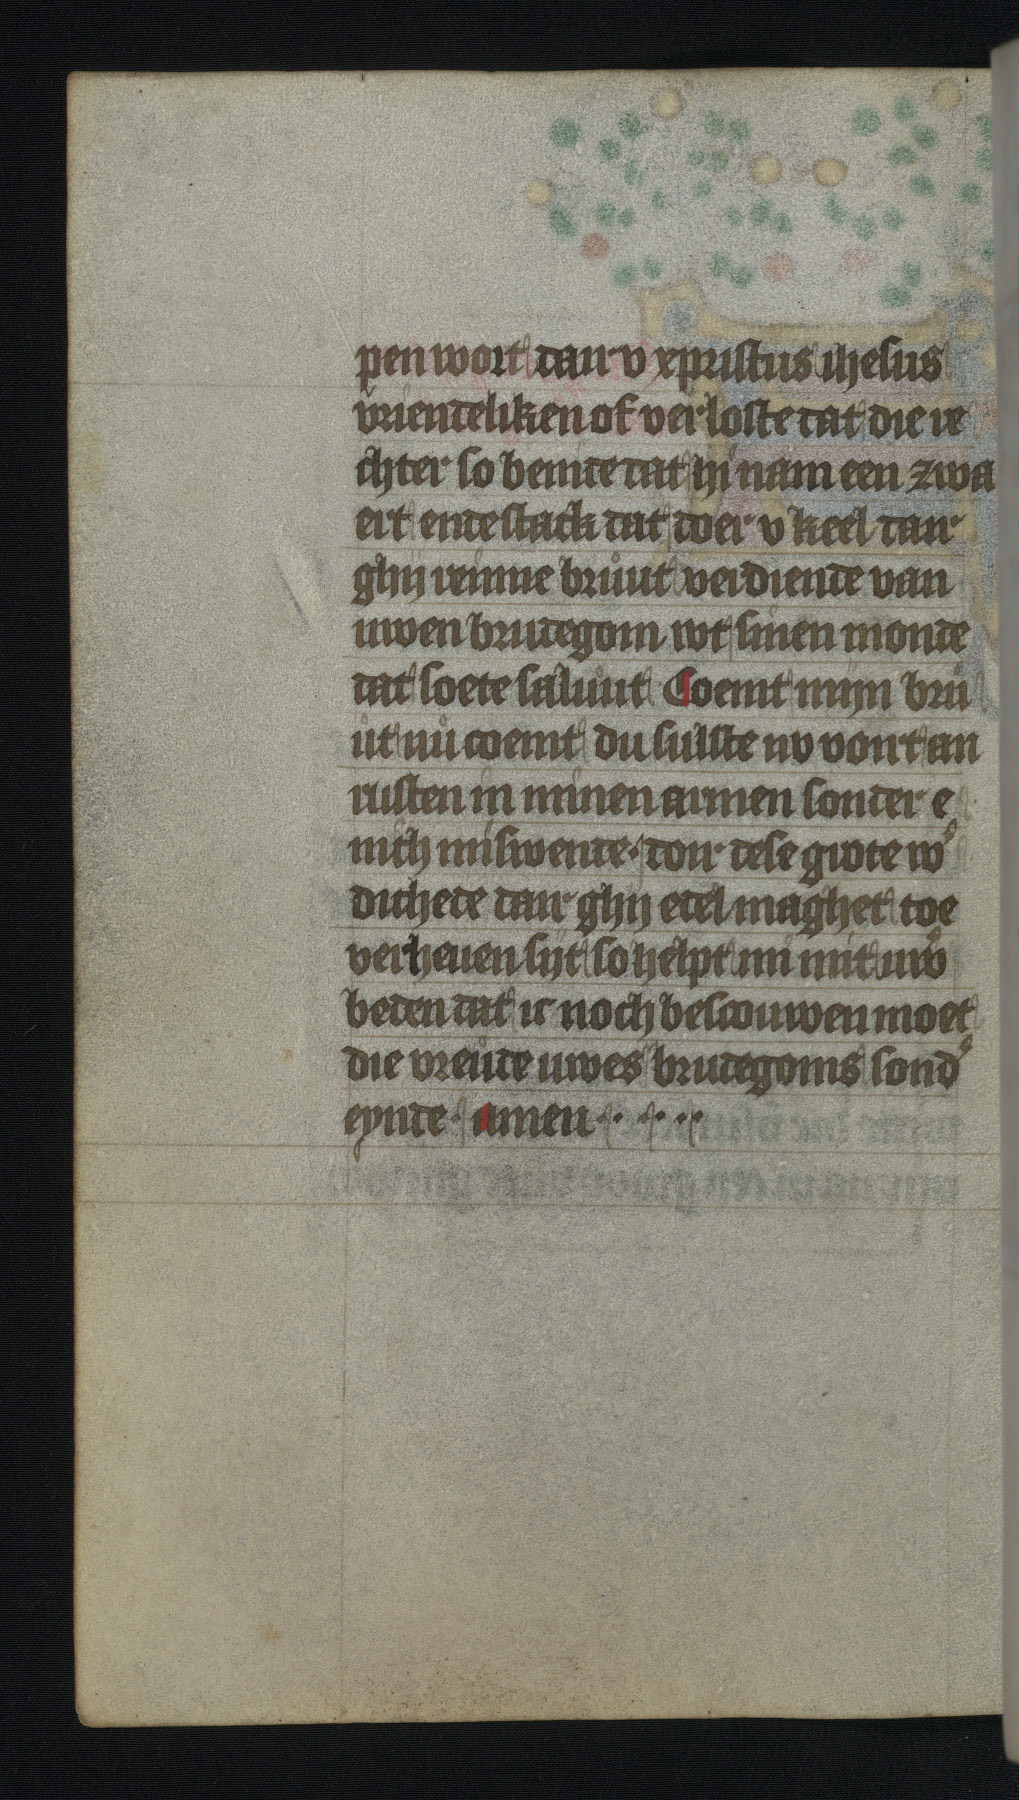 pen wort daer v xpristus ihesus
vriendeliken of verloste dat die re
chter so benide dat hi nam een zwa
ert ende stack dat doer v keel daer
ghij reinne bruut verdiende van
uwen brudegom wt sinen monde
dat soete saluut Coemt mijn bru
ut nu coemt du sulste nv vort an
rusten in minen armen sonder e
nich miswende · doir dese grote w
dichede dair ghij edel maghet toe
verheuen sijt so helpt mi mit uw
beden dat ic noch bescouwen moet
die vreude uwes brudegoms sond
eynde · amen · · · · ·